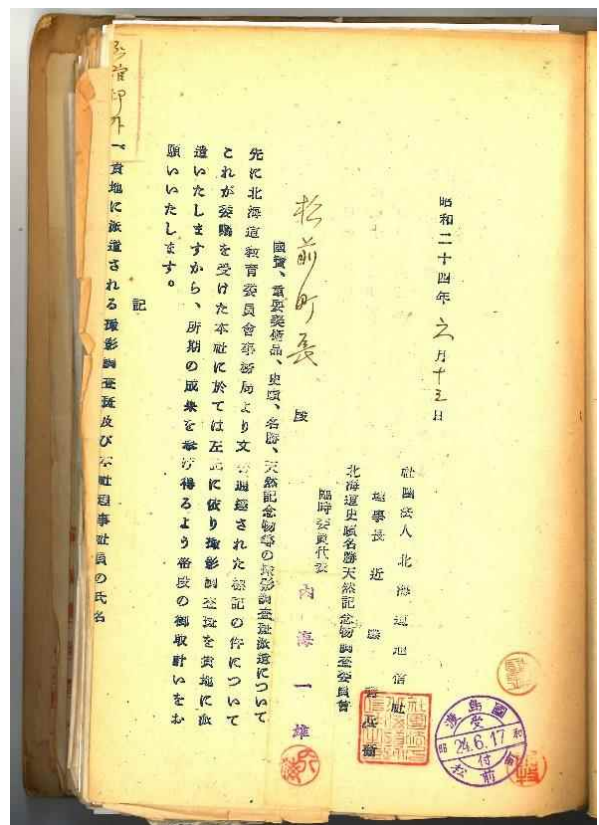 昭和二十四年六月十三日
社團法人 北海道通信社
理事長 近藤
北海道史蹟名勝天然記念物調査委員會
臨時委員代表
内海一雄
松前町長 殿
國寶、重要美術品、史蹟、名勝、天然記念物等の撮影調査班派遣について
先に北海道教育委員會事務局より文書通達された標記の件について
これが委嘱を受けた本社に於ては左記に依り撮影調査班を貴地に派
遣いたしますから、所期の成果を挙げ得るよう格段の御取計いをお
願いいたします。
記
一、貴地に派遣される撮影調査班及び本社理事社員の氏名
渡島國
受
24.6.17
付
松前